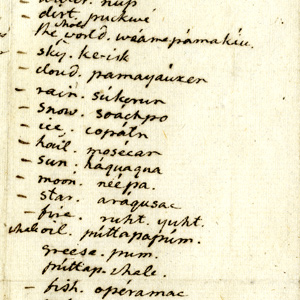 - water. nup
- dirt. puckwé
the whole world. weámepámakiu.
- sky. ke-isk
- cloud. pamayáuxen
- rain. súkerun
- snow. soáchpo
- ice. copátn
- hail. mosécar
- sun. háquaqna
- moon. neépa.
- star. aráqusac
- fire. ruht. yuht.
whale oil. púttapapúm.
greese. pum.
púttap. whale.
- fish. opéramac